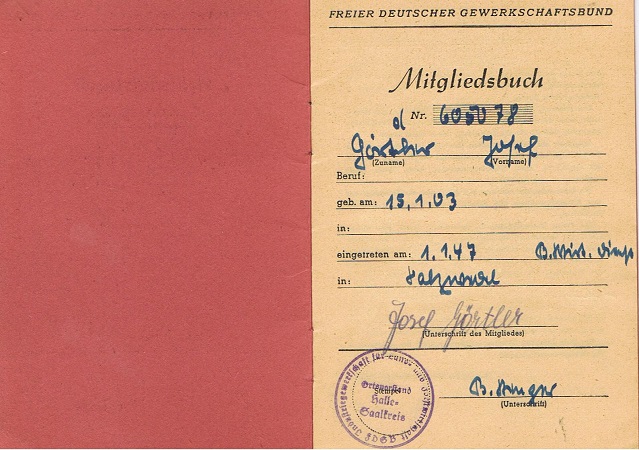 FREIER DEUTSCHER GEWERKSCHAFTSBUND
Mitgliedsbuch
Nr. 78
Görtler Josef
(Zuname) (Vorname)
Beruf:
geb. am: 15.1.03
in:
eingetreten am: 1.1.47
in: Salzmünde
Josef Görtler
(Unterschrift des Mitgliedes)
Industriegewerkschaft für Land- und Forstwirtschaft
Ortsvorstand
Halle-
Saalkreis
FDGB
B.
(Unterschrift)